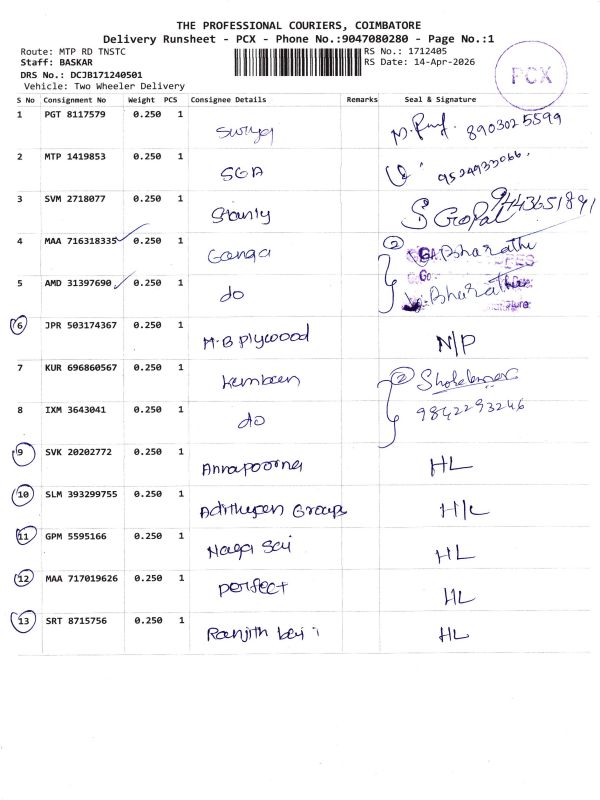 THE PROFESSIONAL COURIERS, COIMBATORE
Delivery Runsheet - PCX - Phone No.:9047080280 - Page No.:1
Route: MTP RD TNSTC
RS No.: 1712405
Staff: BASKAR
RS Date: 14-Apr-2026
DRS No.: DCJB171240501
Vehicle: Two Wheeler Delivery
PCX
S No Consignment No Weight PCS Consignee Details Remarks Seal & Signature
1 PGT 8117579 0.250 1 Surya 8903025599
2 MTP 1419853 0.250 1 SGA 9524933066.
3 SVM 2718077 0.250 1 Stanly S Gopal 9443651891
4 MAA 716318335 0.250 1 Ganga 2 GA. Bharathi
5 AMD 31397690 0.250 1 do Bharathi
6 JPR 503174367 0.250 1 M.B Plywood N/P
7 KUR 696860567 0.250 1 2
8 IXM 3643041 0.250 1 do 9842293246
9 SVK 20202772 0.250 1 Annapoorna HL
10 SLM 393299755 0.250 1 Groups H/L
11 GPM 5595166 0.250 1 Naga Sai HL
12 MAA 717019626 0.250 1 perfect HL
13 SRT 8715756 0.250 1 Ranjith HL